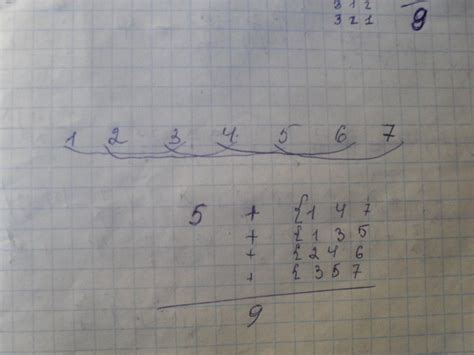 3 1 2
3 2 1
9
1 2 3 4 5 6 7
5 + { 1 4 7
+ { 1 3 5
+ { 2 4 6
+ { 3 5 7
9